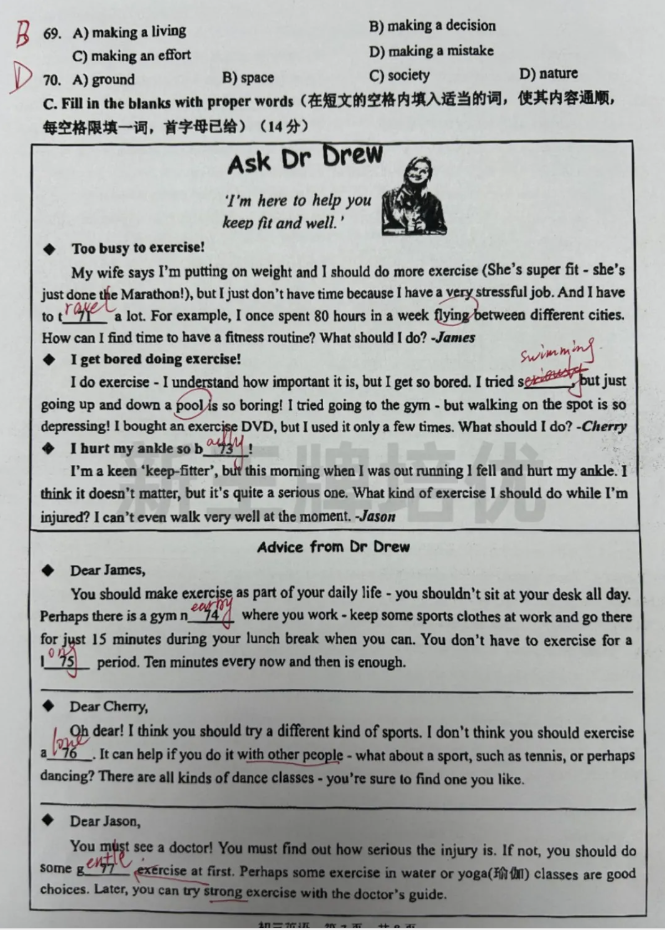 B 69. A) making a living B) making a decision
C) making an effort D) making a mistake
D 70. A) ground B) space C) society D) nature
C. Fill in the blanks with proper words（在短文的空格内填入适当的词，使其内容通顺，
每空格限填一词，首字母已给）（14 分）
Ask Dr Drew
'I'm here to help you
keep fit and well.'
◆ Too busy to exercise!
My wife says I'm putting on weight and I should do more exercise (She's super fit - she's
just done the Marathon!), but I just don't have time because I have a very stressful job. And I have
to t ravel 71 a lot. For example, I once spent 80 hours in a week flying between different cities.
How can I find time to have a fitness routine? What should I do? -James
◆ I get bored doing exercise!
swimming
I do exercise - I understand how important it is, but I get so bored. I tried s , but just
going up and down a pool is so boring! I tried going to the gym - but walking on the spot is so
depressing! I bought an exercise DVD, but I used it only a few times. What should I do? -Cherry
◆ I hurt my ankle so b adly 73 !
I'm a keen 'keep-fitter', but this morning when I was out running I fell and hurt my ankle. I
think it doesn't matter, but it's quite a serious one. What kind of exercise I should do while I'm
injured? I can't even walk very well at the moment. -Jason
新王牌培优
Advice from Dr Drew
◆ Dear James,
You should make exercise as part of your daily life - you shouldn't sit at your desk all day.
Perhaps there is a gym n earby 74 where you work - keep some sports clothes at work and go there
for just 15 minutes during your lunch break when you can. You don't have to exercise for a
l ong 75 period. Ten minutes every now and then is enough.
◆ Dear Cherry,
Oh dear! I think you should try a different kind of sports. I don't think you should exercise
a lone 76 . It can help if you do it with other people - what about a sport, such as tennis, or perhaps
dancing? There are all kinds of dance classes - you're sure to find one you like.
◆ Dear Jason,
You must see a doctor! You must find out how serious the injury is. If not, you should do
some g entle 77 exercise at first. Perhaps some exercise in water or yoga(瑜伽) classes are good
choices. Later, you can try strong exercise with the doctor's guide.